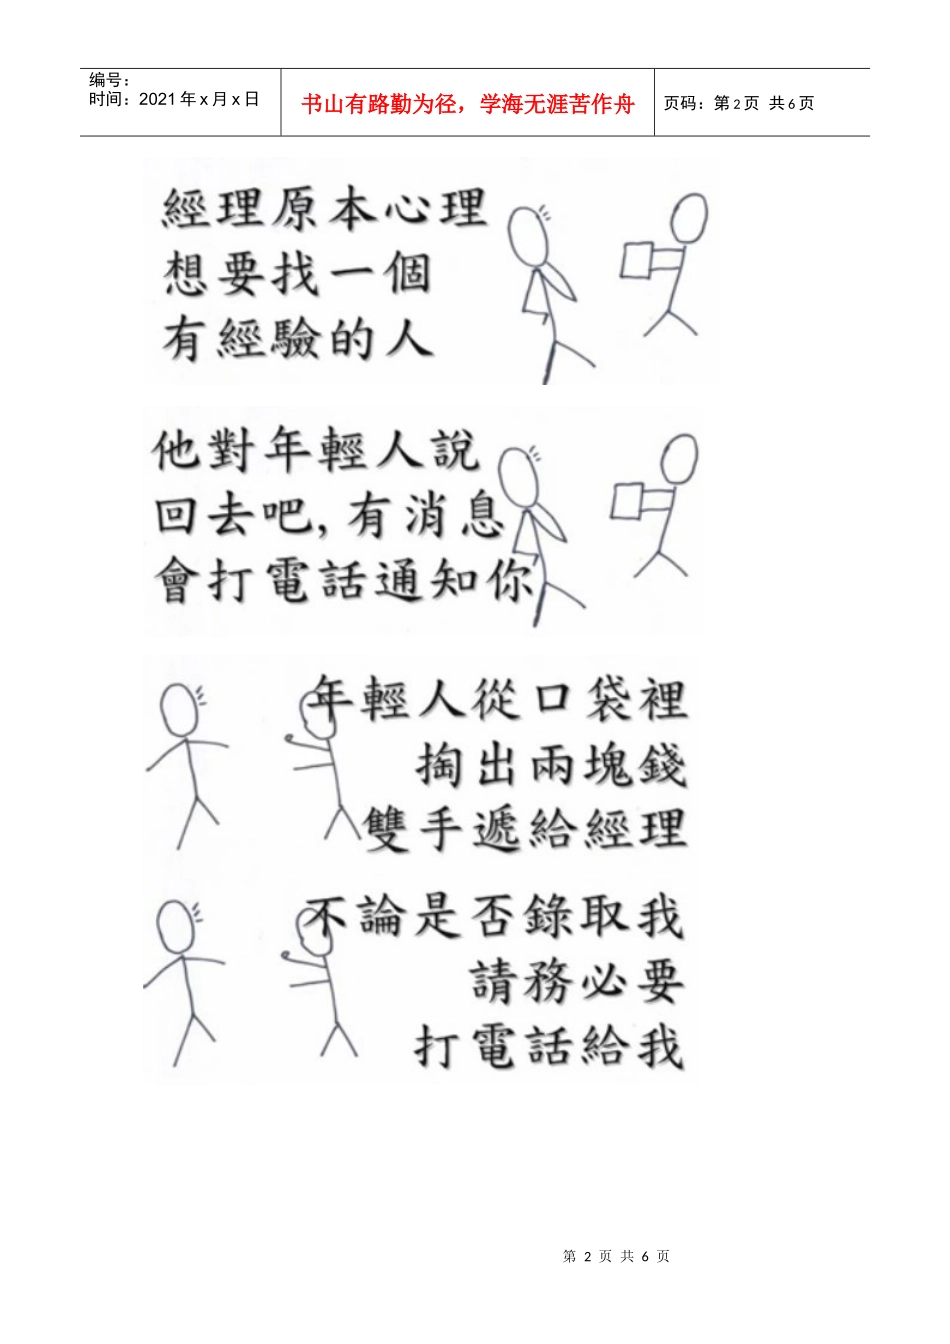 编号：
时间：2021年x月x日
书山有路勤为径，学海无涯苦作舟
页码：第2页 共6页
經理原本心理
想要找一個
有經驗的人
他對年輕人說
回去吧,有消息
會打電話通知你
年輕人從口袋裡
掏出兩塊錢
雙手遞給經理
不論是否錄取我
請務必要
打電話給我
第 2 页 共 6 页